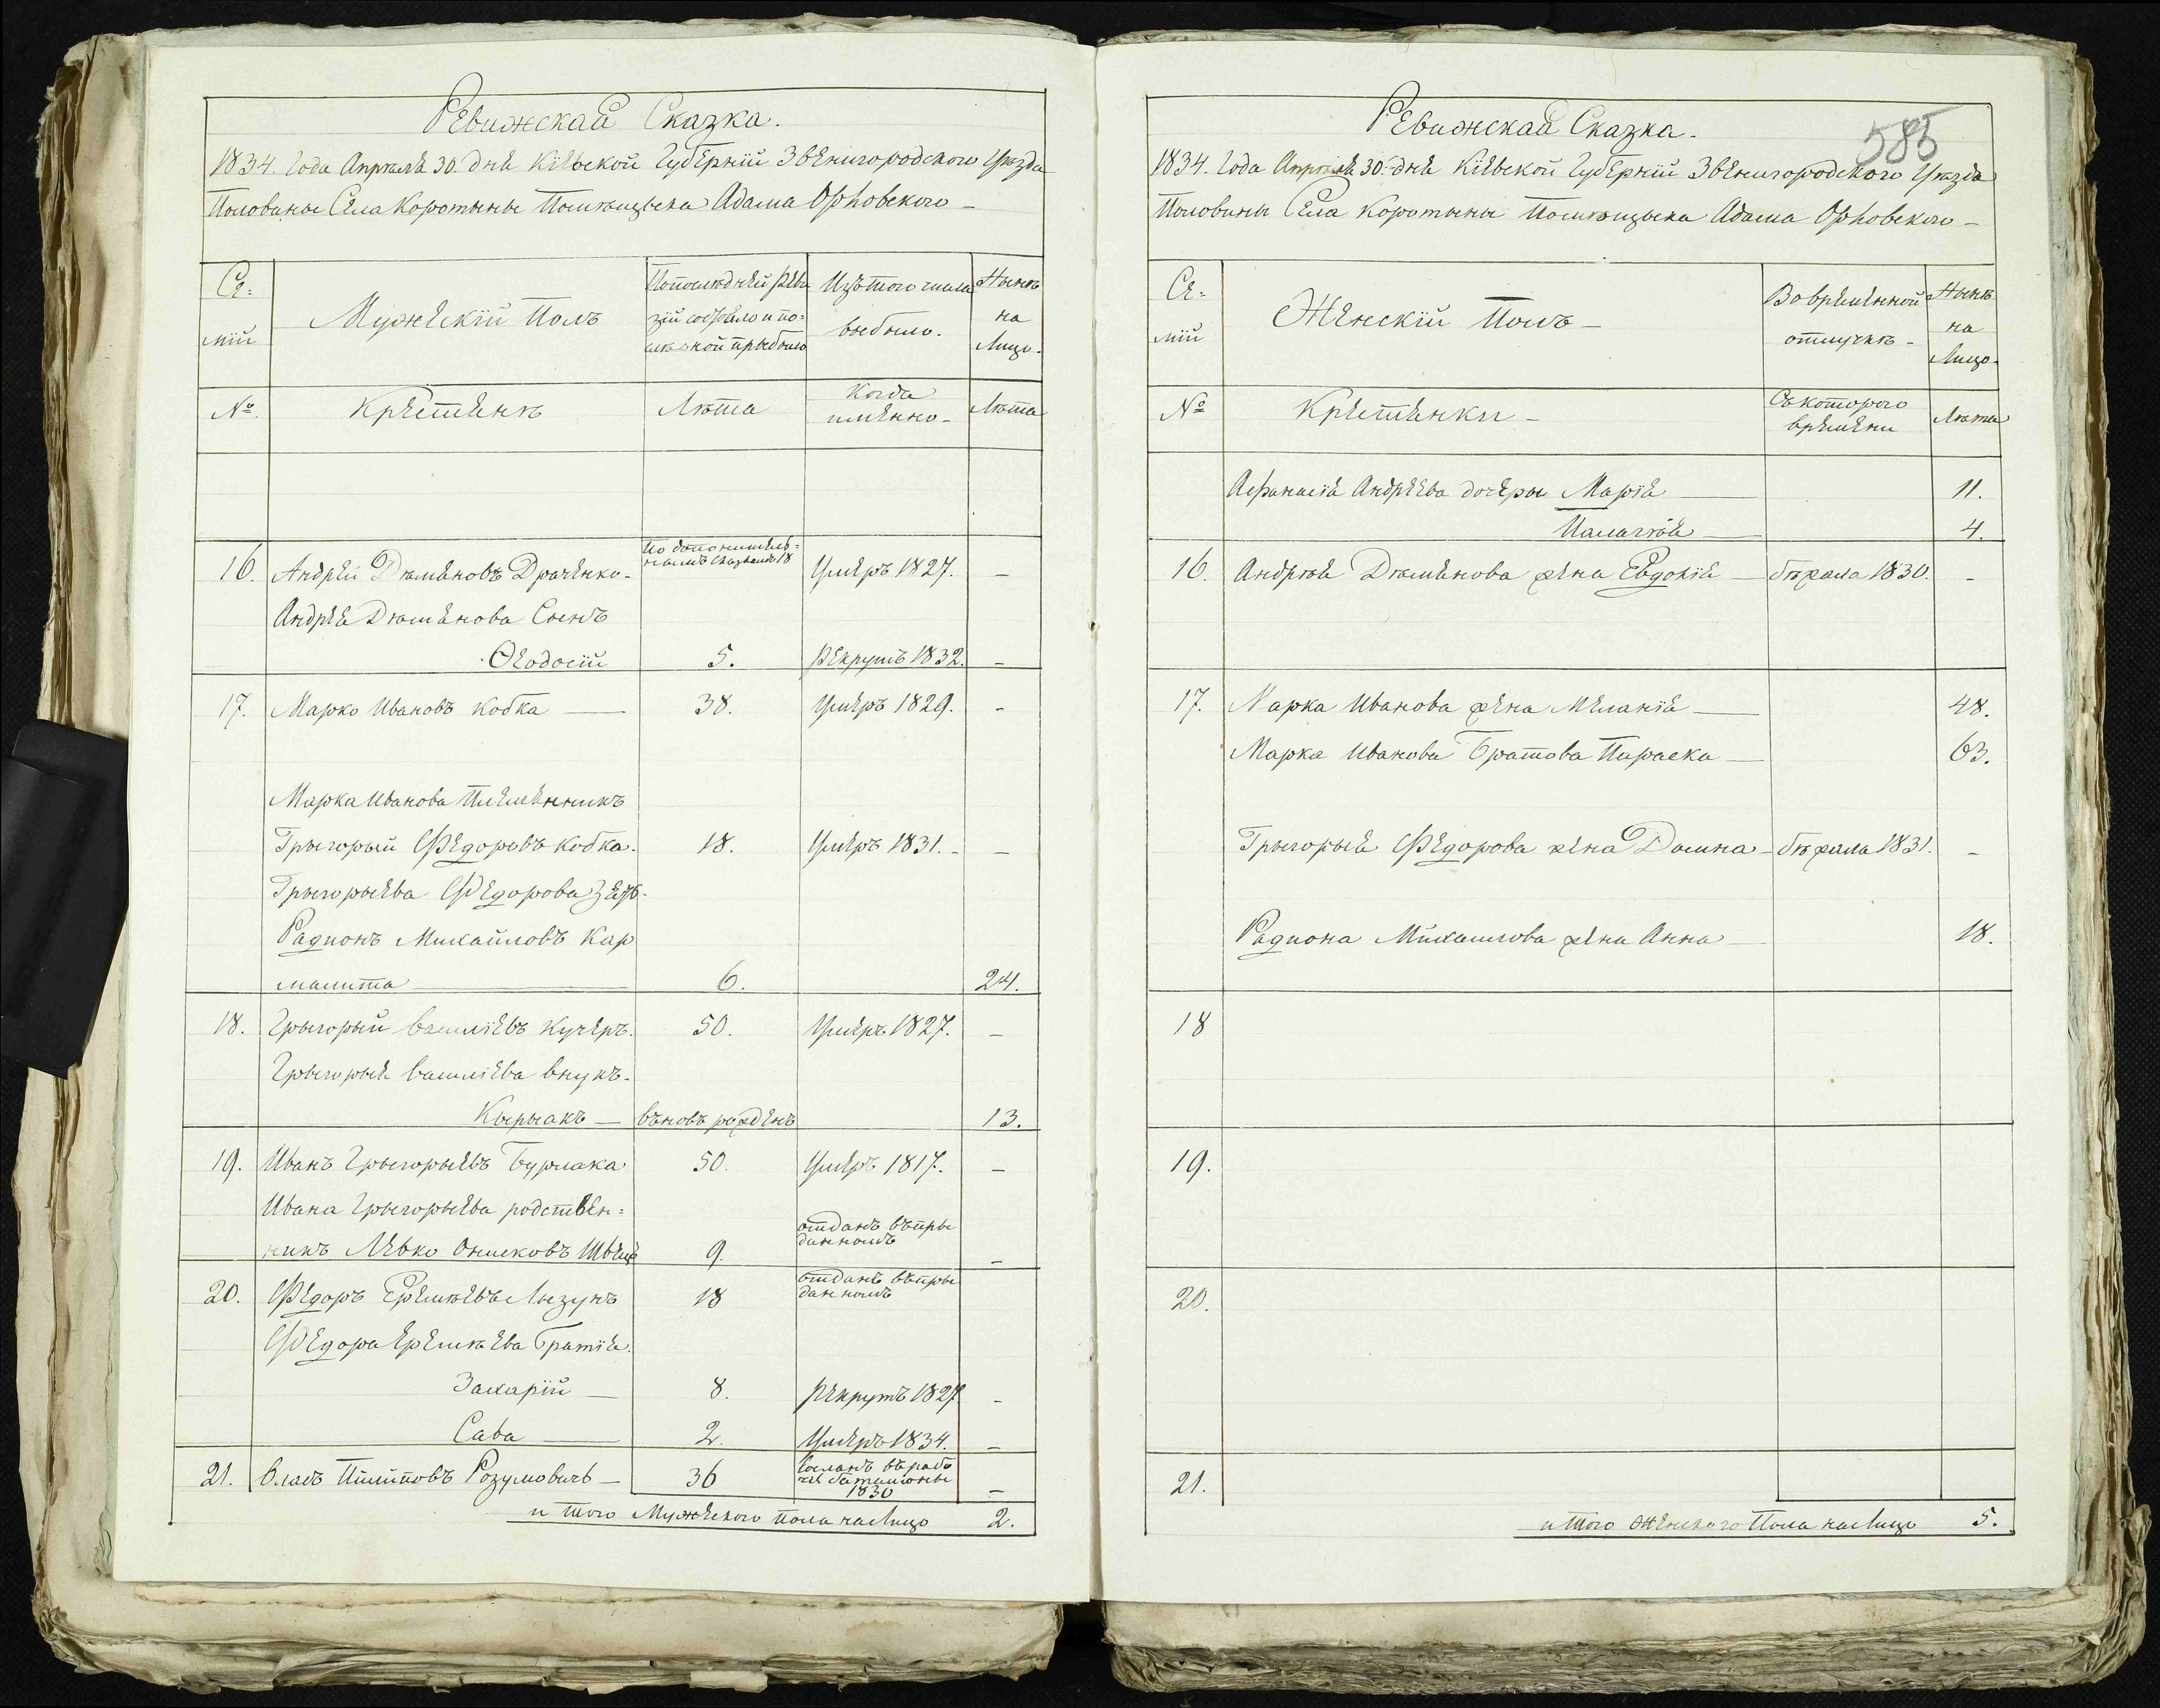 Ревижская Сказка.
1834. Года Апреля 30. дня Кіевской Губерніи Звенигородского Уезда
Половины Села Коротыны Помещыка Адама
Се=
мйи
Мужескій Полъ
По последней реви
зіи состояло и по=
Изъ того числа
выбыло.
Ныне
на
Лицо.
№.
Крестяне
Лета
Когда
именно-
Лета
16.
Андрей Демяновъ Драченко-
По дополнитель=
нымъ сказкамъ 18
Умеръ 1827.
-
Андрея Демянова Сынъ
Ѳеодосій
5.
рекрутъ 1832.
-
17.
Марко Ивановъ Кобка
38.
Умеръ 1829.
-
Марка Иванова Племянникъ
Грыгорый Федоровъ Кобка.
18.
Умеръ 1831.-
-
Грыгорыева Федорова Зять-
Радионъ Михайловъ Кар
малита
6.
24.
18.
Грыгорый Василіевъ Кучеръ.
50.
Умеръ 1827.
-
Грыгорыя Василіева Внукъ.
Кырыакъ
вновь рожденъ
13.
19.
Иванъ Грыгорыевъ Бурлака
50.
Умеръ 1817.
-
Ивана Грыгорыева родствен=
никъ Левко
9.
отданъ въ при
данномъ
-
20.
Федоръ Еремеевъ Лызунъ
18
отданъ въ при
данномъ
Федора Еремеева Братія.
Захарій
8.
рекрутъ 1827
-
Сава
2.
Умеръ 1834.
-
21.
Власъ Пилиповъ Розумовичь
36
Сосланъ въ рабо
чіе баталионы
1830
-
и того Мужеского пола на Лицо
2.
585
Ревижская Сказка.
1834. Года Апреля 30. дня Кіевской Губерніи Звенигородского Уезда
Половины Села Коротыны Помещыка Адама
Се=
мйи
Женскій Полъ-
Во временной
отлучке-
Ныне
на
Лицо.
№
Крестянки-
Съ которого
времени
Лета
Афанасія Андреева дочеры Марія
11.
Палагея
4.
16.
Андрея Демянова жена Евдокія
бежала 1830.
-
17.
Марка Иванова жена Меланія
48.
Марка Иванова Братова Параска
63.
Грыгорыя Федорова жена Домна
бежала 1831.
-
Радиона Михайлова жена Анна
18.
18
19.
20.
21.
и того Женского Пола на Лицо
5.